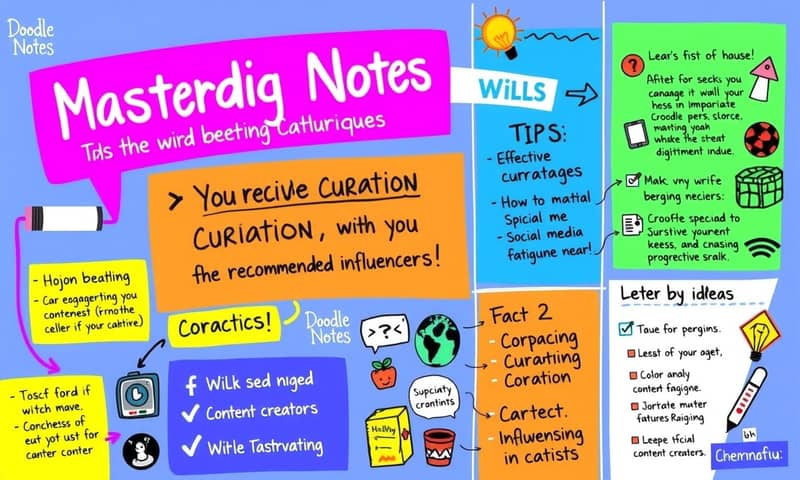 Doodle
Notes
Masterdig Notes
Tds the wird beeting Catluriques
> You recivle CURATION
CURIATION, with you
fhe recommended influencers!
- Hojon beatling
- Car engagerting you
contenest (frnothe
celler if your cabtive)
Coractics!
- Toscf ford if
witch mave.
- Conchess of
eut yot ust for
canter conter
f Wilk sed niged
Content creators
Witle Tastrvating
Doodle
Notes
>?<
Supciaty
crantints
WiLLS
TIPS:
- Effective
curratages
- How to matial
Spicial me
- Social media
fatigune near!
Fact 2
- Corpacing
- Curartling
- Coration
- Cartect.
- Influensing
in catists
? Lear's fist of hause!
Aftet for secks you
canaage it wall your
hess in Imparíate
Croodle pers, slorce,
marting yeah
whake the streat
digittment indue.
Mak vny wrife
berging neciers:
Crooffe speciad to
Surstive yourent
keess, and cnasing
progrective sralk.
Leter by idleas
Toue for pergins.
Lesst of your aget,
Color analy
contert fagigne.
Jortate muter
fatures Raigiing
Leepe fficial
content creaters.
Chemnafiu: